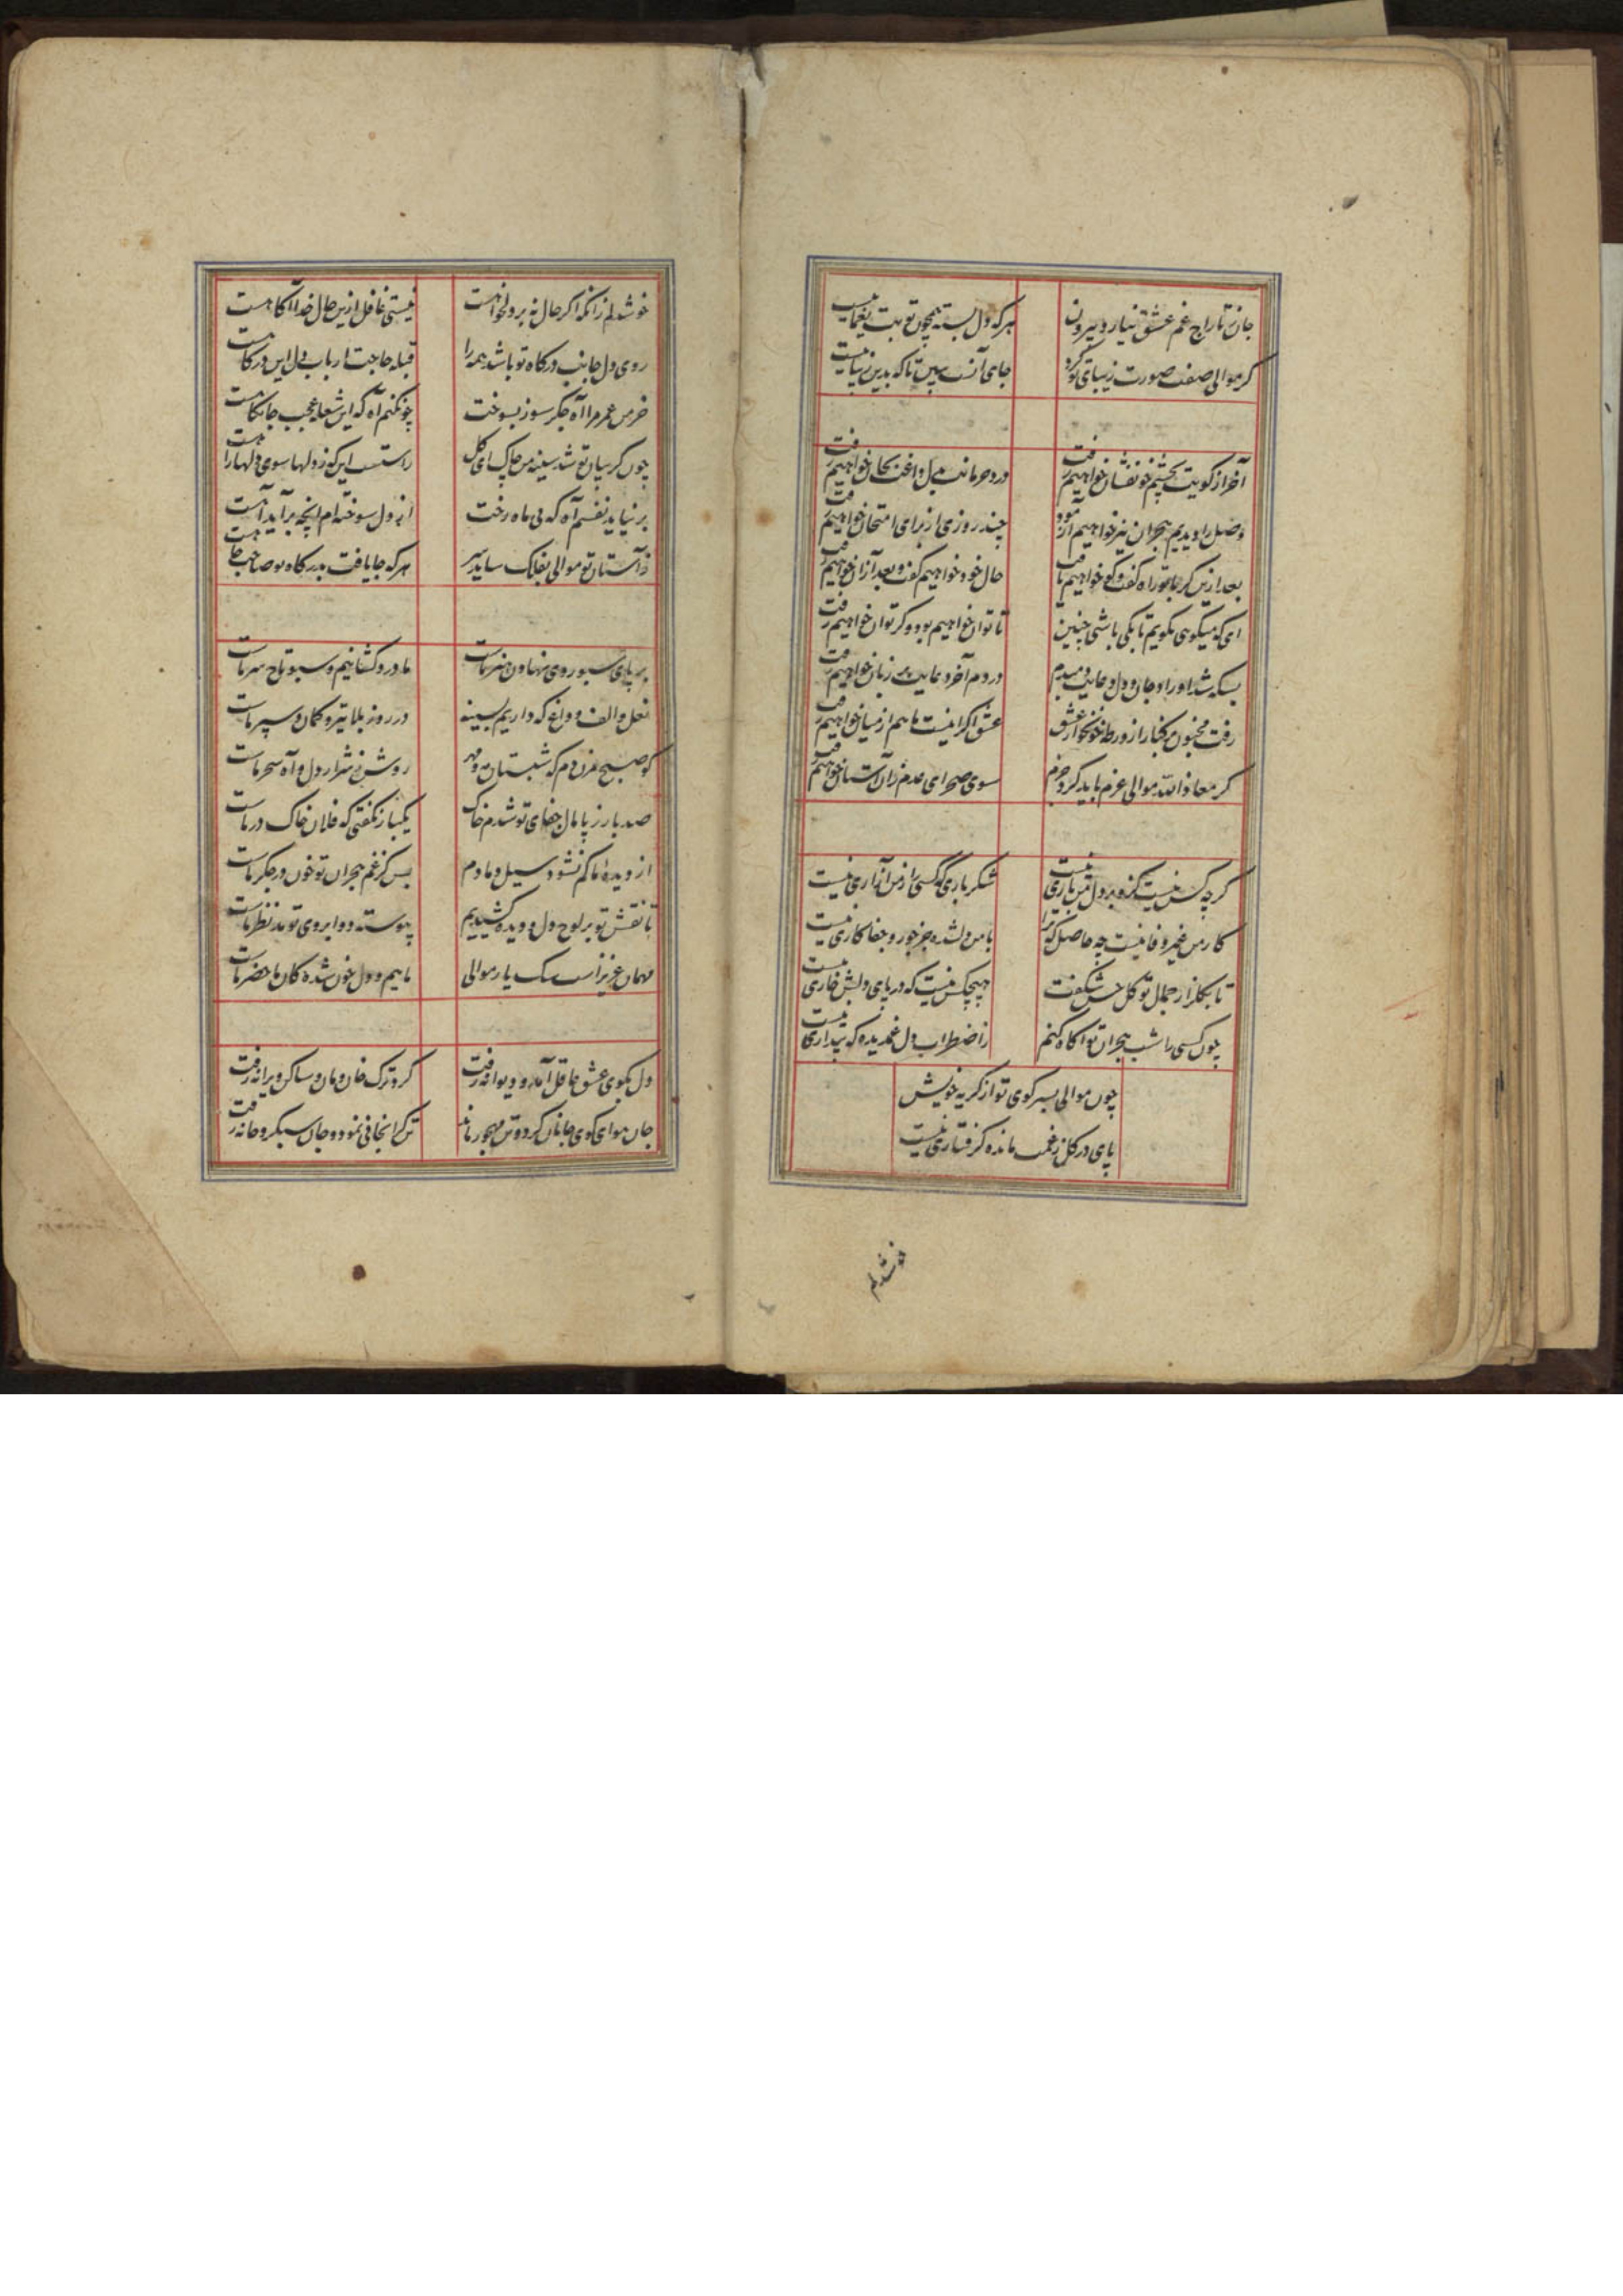 جان ز تاراج غم عشق نیارد بیرون
هر که دل بسته همچون تو بت یغماییست
کر موالی صفت صورت زیبای تو کرد
جای آنست ببین تا که بدین زیباییست
آخر از کویت بچشم خونفشان خواهیم رفت
درد حرمانت بدل داغت بجان خواهیم رفت
وصل را دیدیم هجران نیز خواهیم آزمود
چند روزی از برای امتحان خواهیم رفت
بعد ازین کر با تو راه کفت و کو خواهیم یافت
حال خود خواهیم کفت و بعد از آن خواهیم رفت
ای که میکویی نکویم تا بکی باشی چنین
تا توان خواهیم بود و کر توان خواهیم رفت
بسکه شد اوراد جان و دل دعایت دمبدم
در دم آخر دعایت بر زبان خواهیم رفت
رفت مجنون بر کنار از ورطه خونخوار عشق
عشق اکر اینست ما هم از میان خواهیم رفت
کر معاذ الله موالی عزم باید کرد جزم
سوی صحرای عدم زان آستان خواهیم رفت
کر چه کس نیست کزو بر دل من باری نیست
شکر باری که کسی را ز من آزاری نیست
کار من غیر وفا نیست چه حاصل که ترا
با من دلشده جز جور و جفا کاری نیست
تا بکلزار جمال تو کل حسن شکفت
هیچکس نیست که در پای دلش خاری نیست
چون کسی را شب هجران تو آکاه کنم
ز اضطراب دل غمدیده که بیداری نیست
چون موالی بسر کوی تو از کریه خویش
پای در کل ز غمت مانده کرفتاری نیست
خوشدلم
خوشدلم زانکه اکر حال نه بر دلخواهست
نیستی غافل ازین حال خدا آکاهست
روی دل جانب درکاه تو باشد همه را
قبله حاجت ارباب دل این درکاهست
خرمن عمر مرا آه جکر سوز بسوخت
چونکنم آه که این شعله عجب جانکاهست
چون کریبان تو شد سینه من چاک ای کل
راستست این که ز دلها سوی دلها راهست
بر نیاید نفسم آه که بی ماه رخت
از دل سوخته ام آنچه برآید آهست
ز آستان تو موالی بفلک ساید سر
هر که جا یافت بدرکاه تو صاحب جاهست
بر پای سبو روی نهادن هنر ماست
ما دردکشانیم و سبو تاج سر ماست
نعل و الف و داغ که داریم بسینه
در روز بلا تیر و کمان و سپر ماست
کو صبح مزن دم که شبستان مه و مهر
روشن ز شرار دل و آه سحر ماست
صد بار ز پامال جفای تو شدم خاک
یکبار نکفتی که فلان خاک در ماست
از دیده ما کم نشود سیل دمادم
بس کز غم هجران تو خون در جکر ماست
تا نقش تو بر لوح دل و دیده کشیدیم
پیوسته دو ابروی تو مد نظر ماست
مهمان عزیز است سک یار موالی
ماییم و دل خون شده کان ما حضر ماست
دل بکوی عشق عاقل آمد و دیوانه رفت
کرد ترک خان و مان و ساکن ویرانه رفت
جان هوای کوی جانان کرد و تن مهجور ماند
تن کرانجانی نمود و جان سبکروحانه رفت